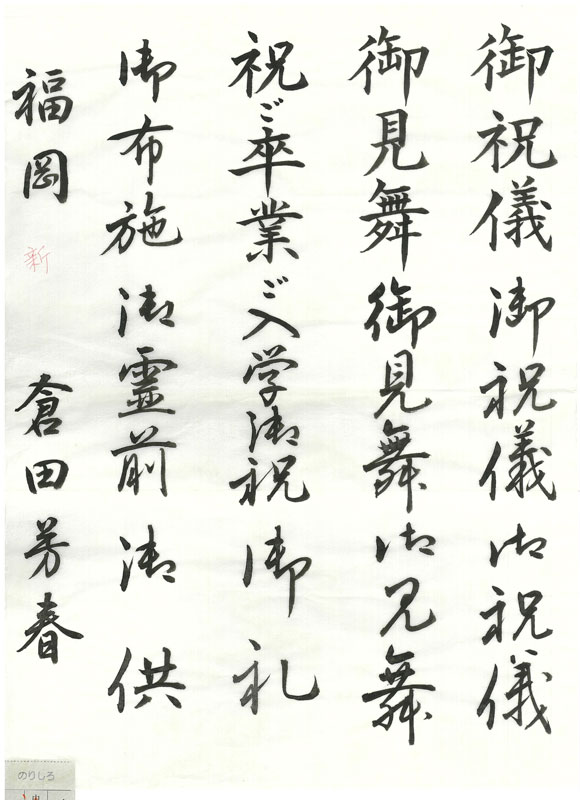 御祝儀 御祝儀 御祝儀
御見舞 御見舞 御見舞
祝ご卒業 ご入学御祝 御礼
御布施 御霊前 御供
福岡 新 倉田芳春
のりしろ